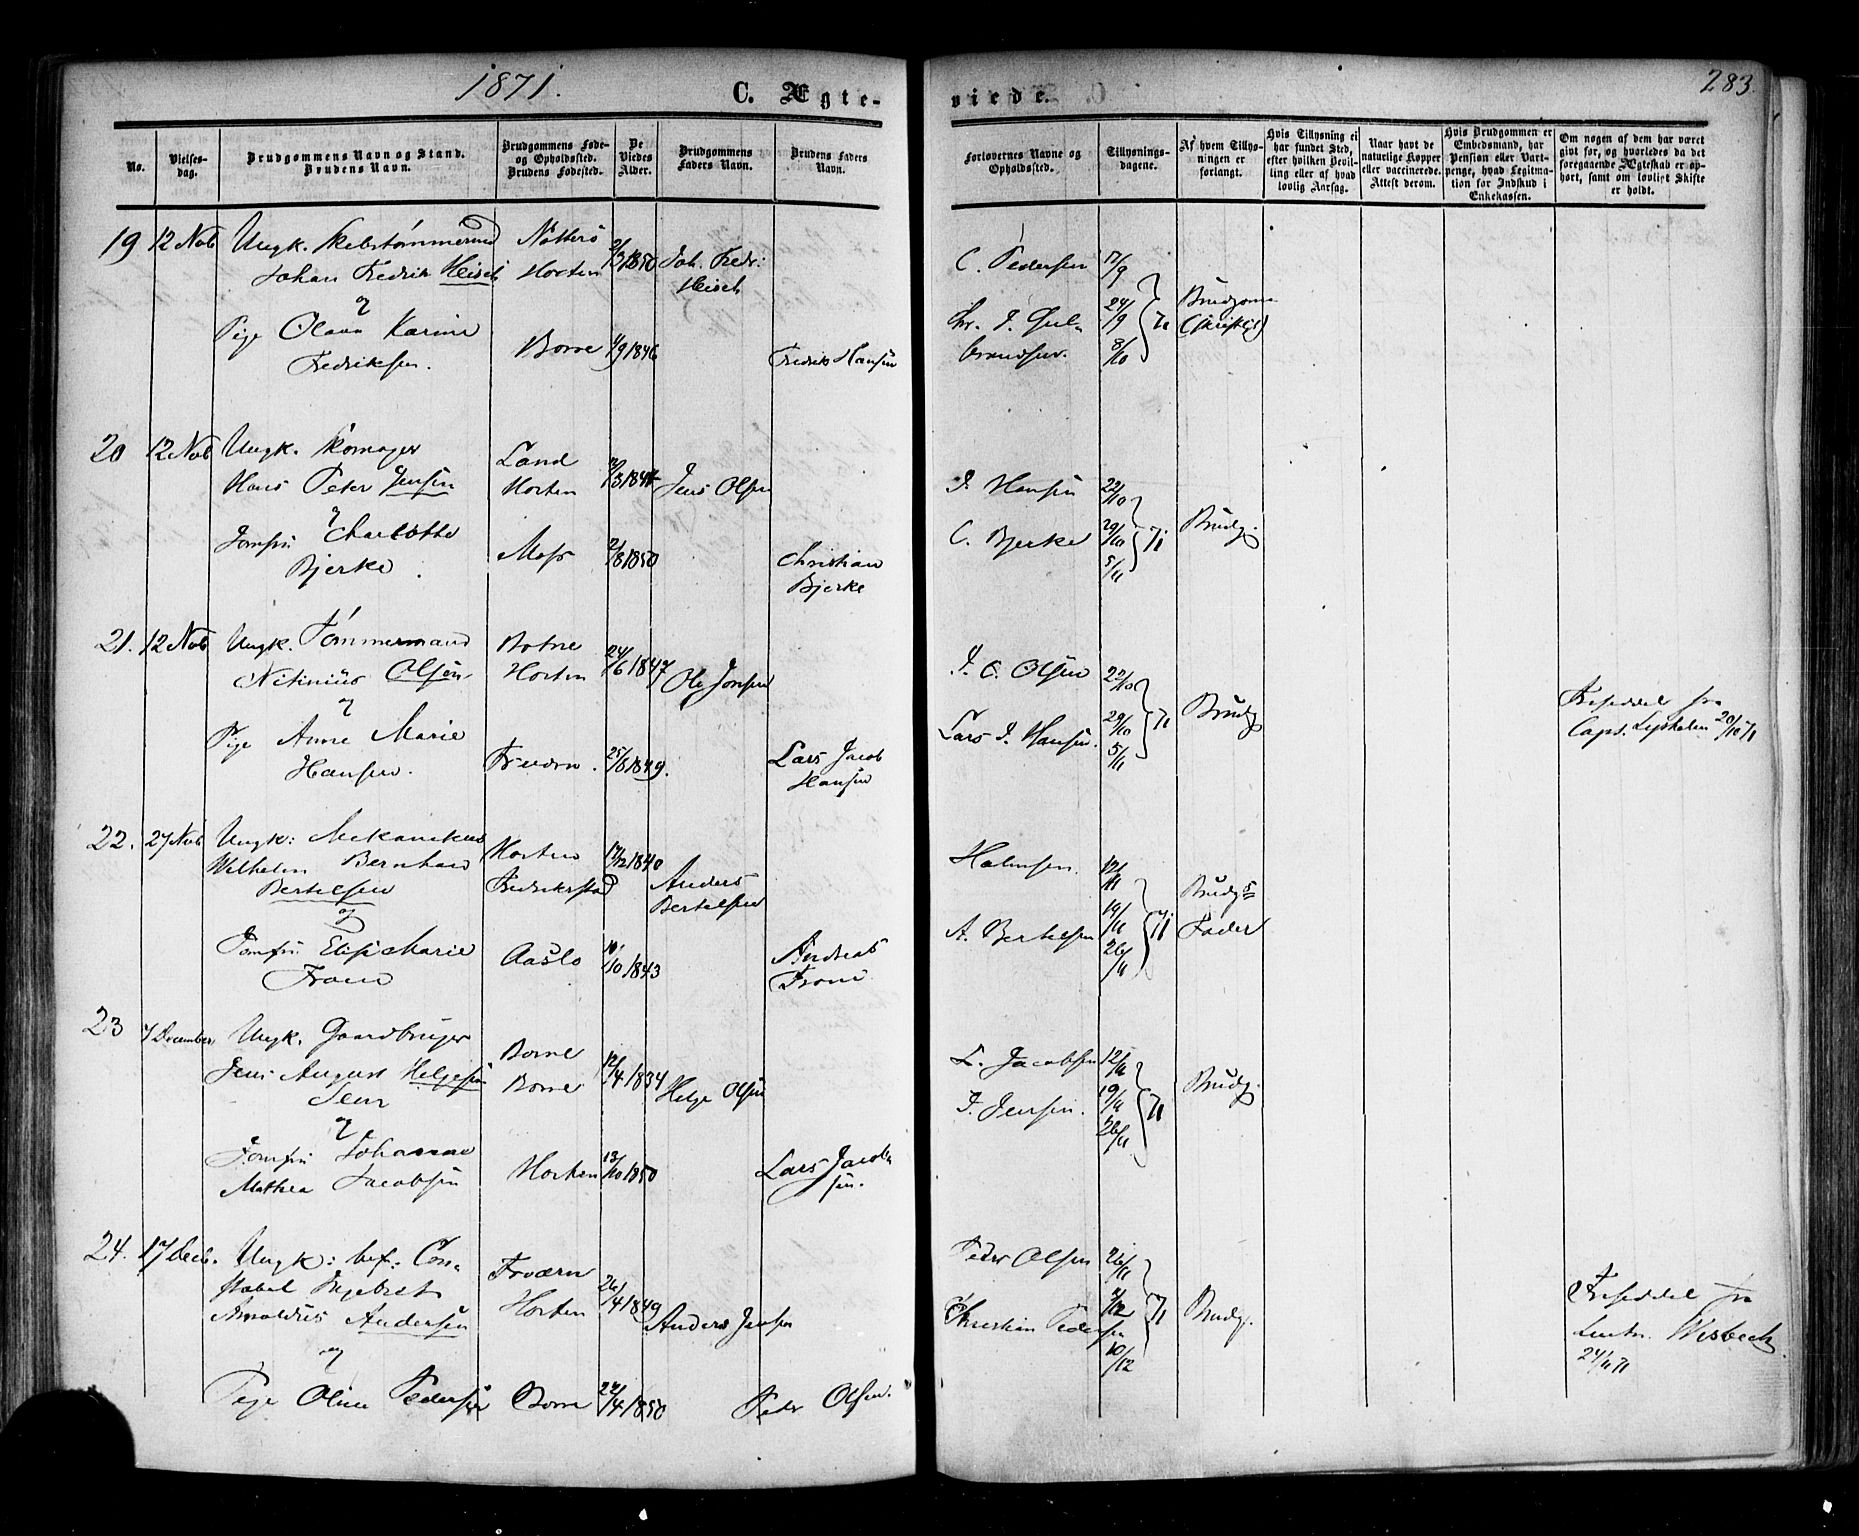 1871.
C. Ægte-
viede.
283.
No.
Vielses-
dag.
Brudgommens Navn og Stand.
Brudens Navn.
Brudgommens Føde-
og Opholdssted.
Brudens Fødested.
De
Viedes
Alder.
Brudgommens
Faders Navn.
Brudens Faders
Navn.
Forlovernes Navne og
Opholdssted.
Tillysnings-
dagene.
Af hvem Tillys-
ningen er
forlangt.
Hvis Tillysning ei
har fundet Sted,
efter hvilken Bevil-
ling eller af hvad
lovlig Aarsag.
Naar havt de
naturlige Kopper
eller vaccinerede.
Attest derom.
Hvis Brudgommen er
Embedsmand, har
Pension eller Vart-
penge, hvad Legitima-
tion for Indskud i
Enkekassen.
Om nogen af dem har været
gift før, og hvorledes da det
foregaaende Ægteskab er op-
hørt, samt om lovligt Skifte
er holdt.
19 12 Nov Ungk. Skibstømmermd Nøtterø
Johan Fredrik Heisch Horten 2/3 1850 Joh. Fredr: Heisch
&
Pige Olava Karine
Fredriksen. Borre 1/9 1846 Fredrik Hansen
C. Pedersen 17/9
24/9 71 Brudgom (skriftlig)
8/10
20 12 Nov Ungk. Skomager Land
Hans Peter Jensen Horten Jens Olsen
&
Jomfru Charlotte
Bjerke. Moss 2/8 1850 Christian Bjerke
J. Hansen 22/10
C. Bjerke 29/10 71 Brudg.
5/11
21. 12 Nov Ungk. Tømmermand Botne
Nitinius Olsen Horten 24/6 1847 Ole Jonsen
&
Pige Anne Marie
Hansen. Fruærn. 25/8 1849. Lars Jacob Hansen
J. C. Olsen 22/10
Lars J. Hansen. 29/10 71 Brudg
5/11
Friseddel fra
Capt. 20/10 71
22. 27 Nov Ungk: Mekanikus Horten
Wilhelm Bernhard Fredrikstad 17/12 1840 Anders Bertelsen
Bertelsen
&
Jomfru Elise Marie
Fron Aaslo 10/10 1843 Andreas Fron
Halmsen. 12/11
A. Bertelsen 19/11 71 Brudgs Fader
26/11
23 7 December Ungk. Gaardbruger Borre
Jens August Helgesen Borre 12/4 1834 Helge Olsen
&
Jomfru Johanne
Mathea Jacobsen Horten 13/10 1850 Lars Jacobsen.
L. Jacobsen 12/11
J. Jensen. 19/11 71 Brudg.
26/11
24. 17 Decb. Ungk: bef: Con-
stabel Ingebret Fruærn
Arnoldus Andersen Horten 26/4 1849 Anders Jensen
&
Pige Oline Pedersen Borre 22/4 1850 Peder Olsen.
Peder Olsen 26/11
Christian Pedersen 3/12 71 Brudg.
10/12
Friseddel fra
Lieutn. Wisbech
24/11 71